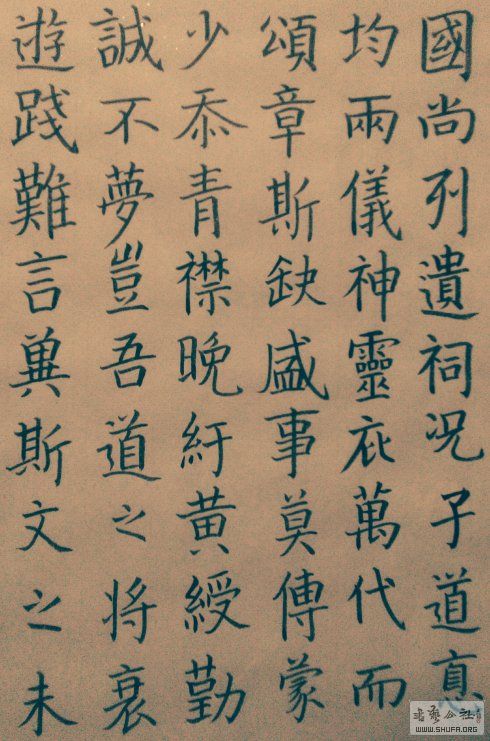 國尚列遺祠况子道悳
均兩儀神靈庇萬代而
頌章斯缺盛事莫傳蒙
少忝青襟晚紆黄綬勤
誠不夢豈吾道之将衰
遊踐難言冀斯文之未
WWW.SHUFA.ORG